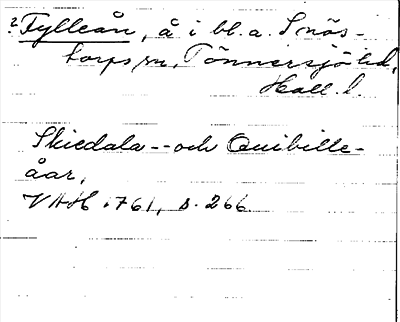 ? Fylleån, å i bl. a. Snös-
torps sn, Tönnersjö hd,
Hall. l.
Skiedala- och Quibille-
åar,
VAH 1761, s. 266